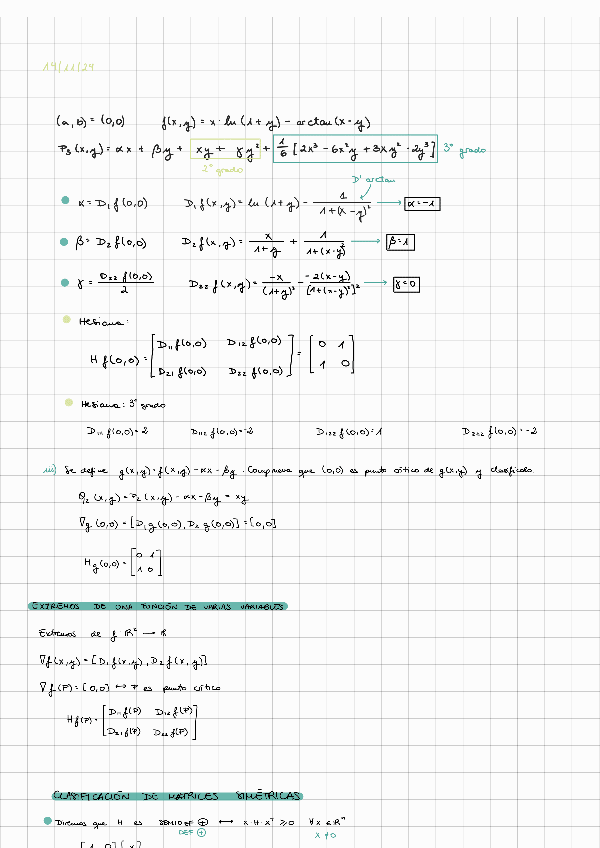 14/11/24
(a,b) = (0,0) f(x,y) = x · ln (1+y) - arctan(x-y)
P₃(x,y) = αx + βy + xy + γy² + 1/6 [2x³ - 6x²y + 3xy² - 2y³] 3º grado
2º grado
D' arctan
α = D₁f(0,0) D₁f(x,y) = ln(1+y) - 1/(1+(x-y)²) → α=-1
β = D₂f(0,0) D₂f(x,y) = x/(1+y) + 1/(1+(x-y)²) → β=1
γ = D₂₂f(0,0)/2 D₂₂f(x,y) = -x/(1+y)² - -2(x-y)/[1+(x-y)²]² → γ=0
Hesiana:
H f(0,0) = [D₁₁f(0,0) D₁₂f(0,0) = [0 1
D₂₁f(0,0) D₂₂f(0,0)] 1 0]
Hesiana: 3º grado
D₁₁₁f(0,0)=2 D₁₁₂f(0,0)=-2 D₁₂₂f(0,0)=1 D₂₂₂f(0,0)=-2
iii) Se define g(x,y)=f(x,y)-αx-βy. Comprueva que (0,0) es punto crítico de g(x,y) y clasifícalo.
Q₂(x,y) = P₂(x,y) - αx - βy = xy
∇g(0,0) = [D₁g(0,0), D₂g(0,0)] = [0,0]
Hg(0,0) = [0 1
1 0]
EXTREMOS DE UNA FUNCIÓN DE VARIAS VARIABLES
Extremos de f R² → R
∇f(x,y) = [D₁f(x,y), D₂f(x,y)]
∇f(P) = [0,0] ↔ P es punto crítico
Hf(P) = [D₁₁f(P) D₁₂f(P)
D₂₁f(P) D₂₂f(P)]
CLASIFICACIÓN DE MATRICES SIMÉTRICAS
Diremos que H es SEMIDEF ⊕ ↔ x·H·xᵀ ≥ 0 ∀x ∈ Rⁿ
DEF ⊕ x ≠ 0